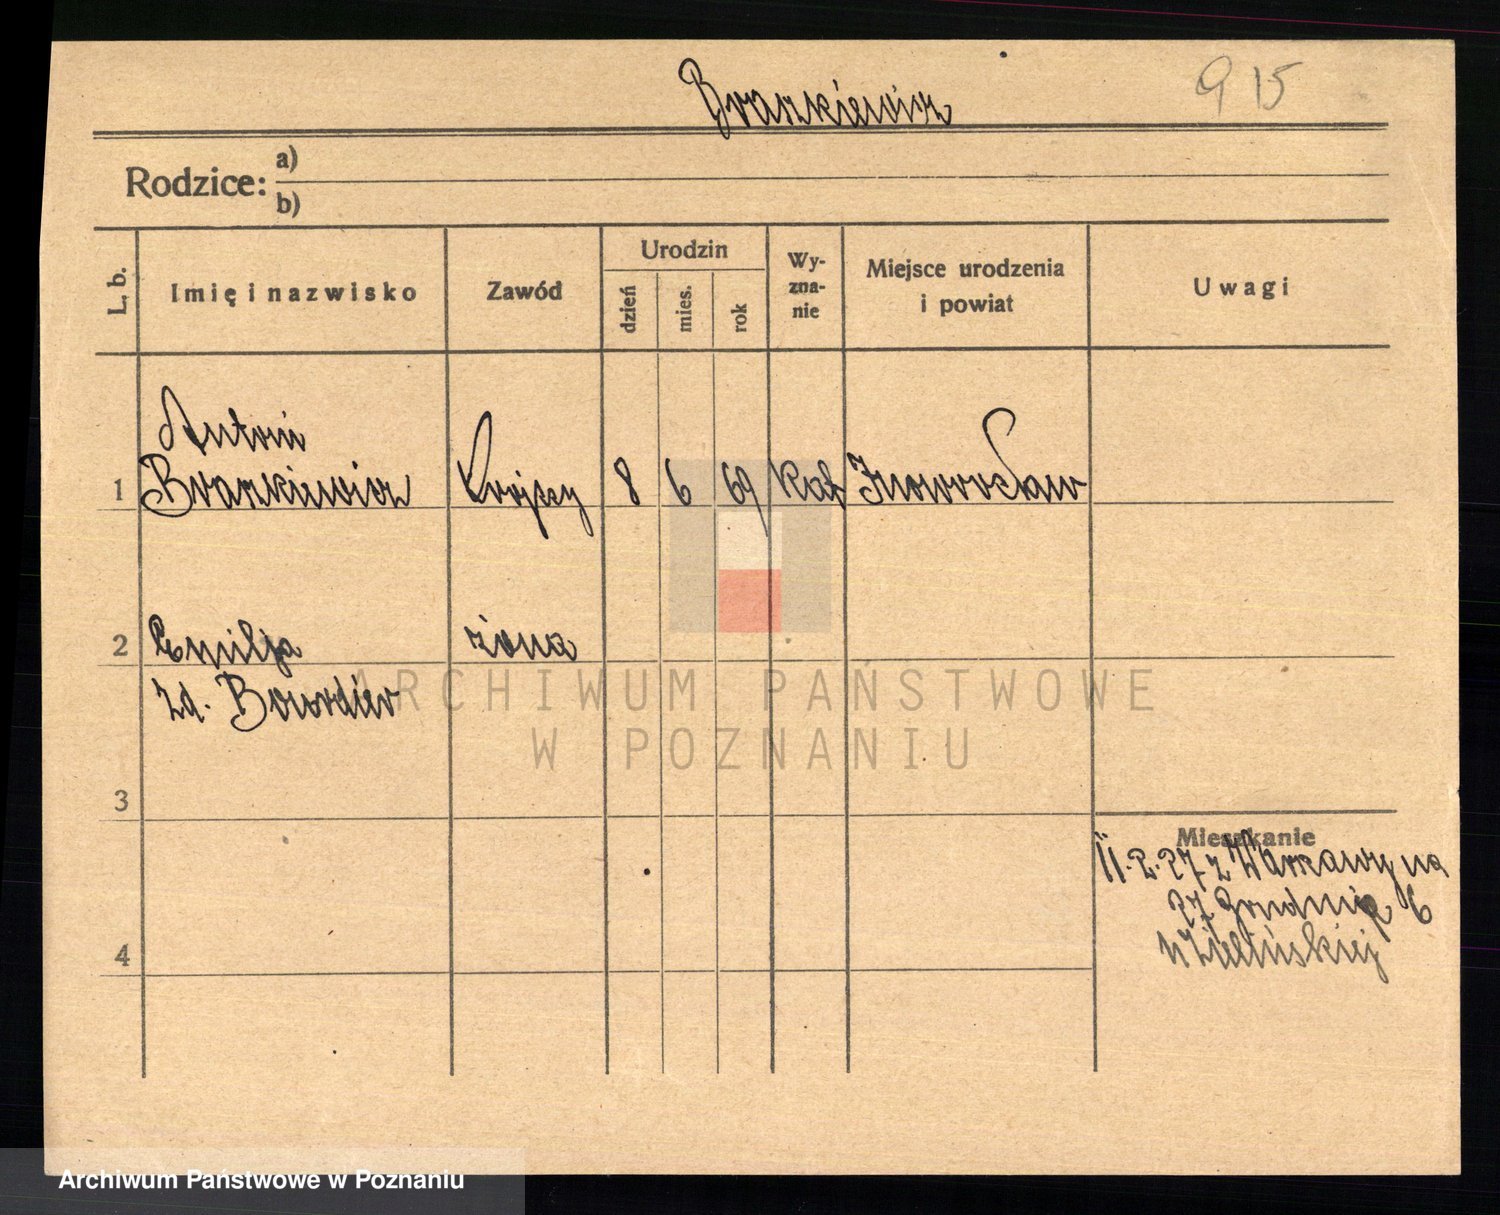 915
Braszkiewicz
Rodzice: a)
b)
L. b.
Imię i nazwisko
Zawód
Urodzin
dzień
mies.
rok
Wy-
zna-
nie
Miejsce urodzenia
i powiat
Uwagi
Antoni
1 Braszkiewicz 8 6 69 Kat Inowrocław
2 Emilja żona
zd. Bourdier
3
Mieszkanie
11.2.27 z Warszawy na
27 Grudnia 6
u Zielińskiej
4
ARCHIWUM PAŃSTWOWE
W POZNANIU
Archiwum Państwowe w Poznaniu